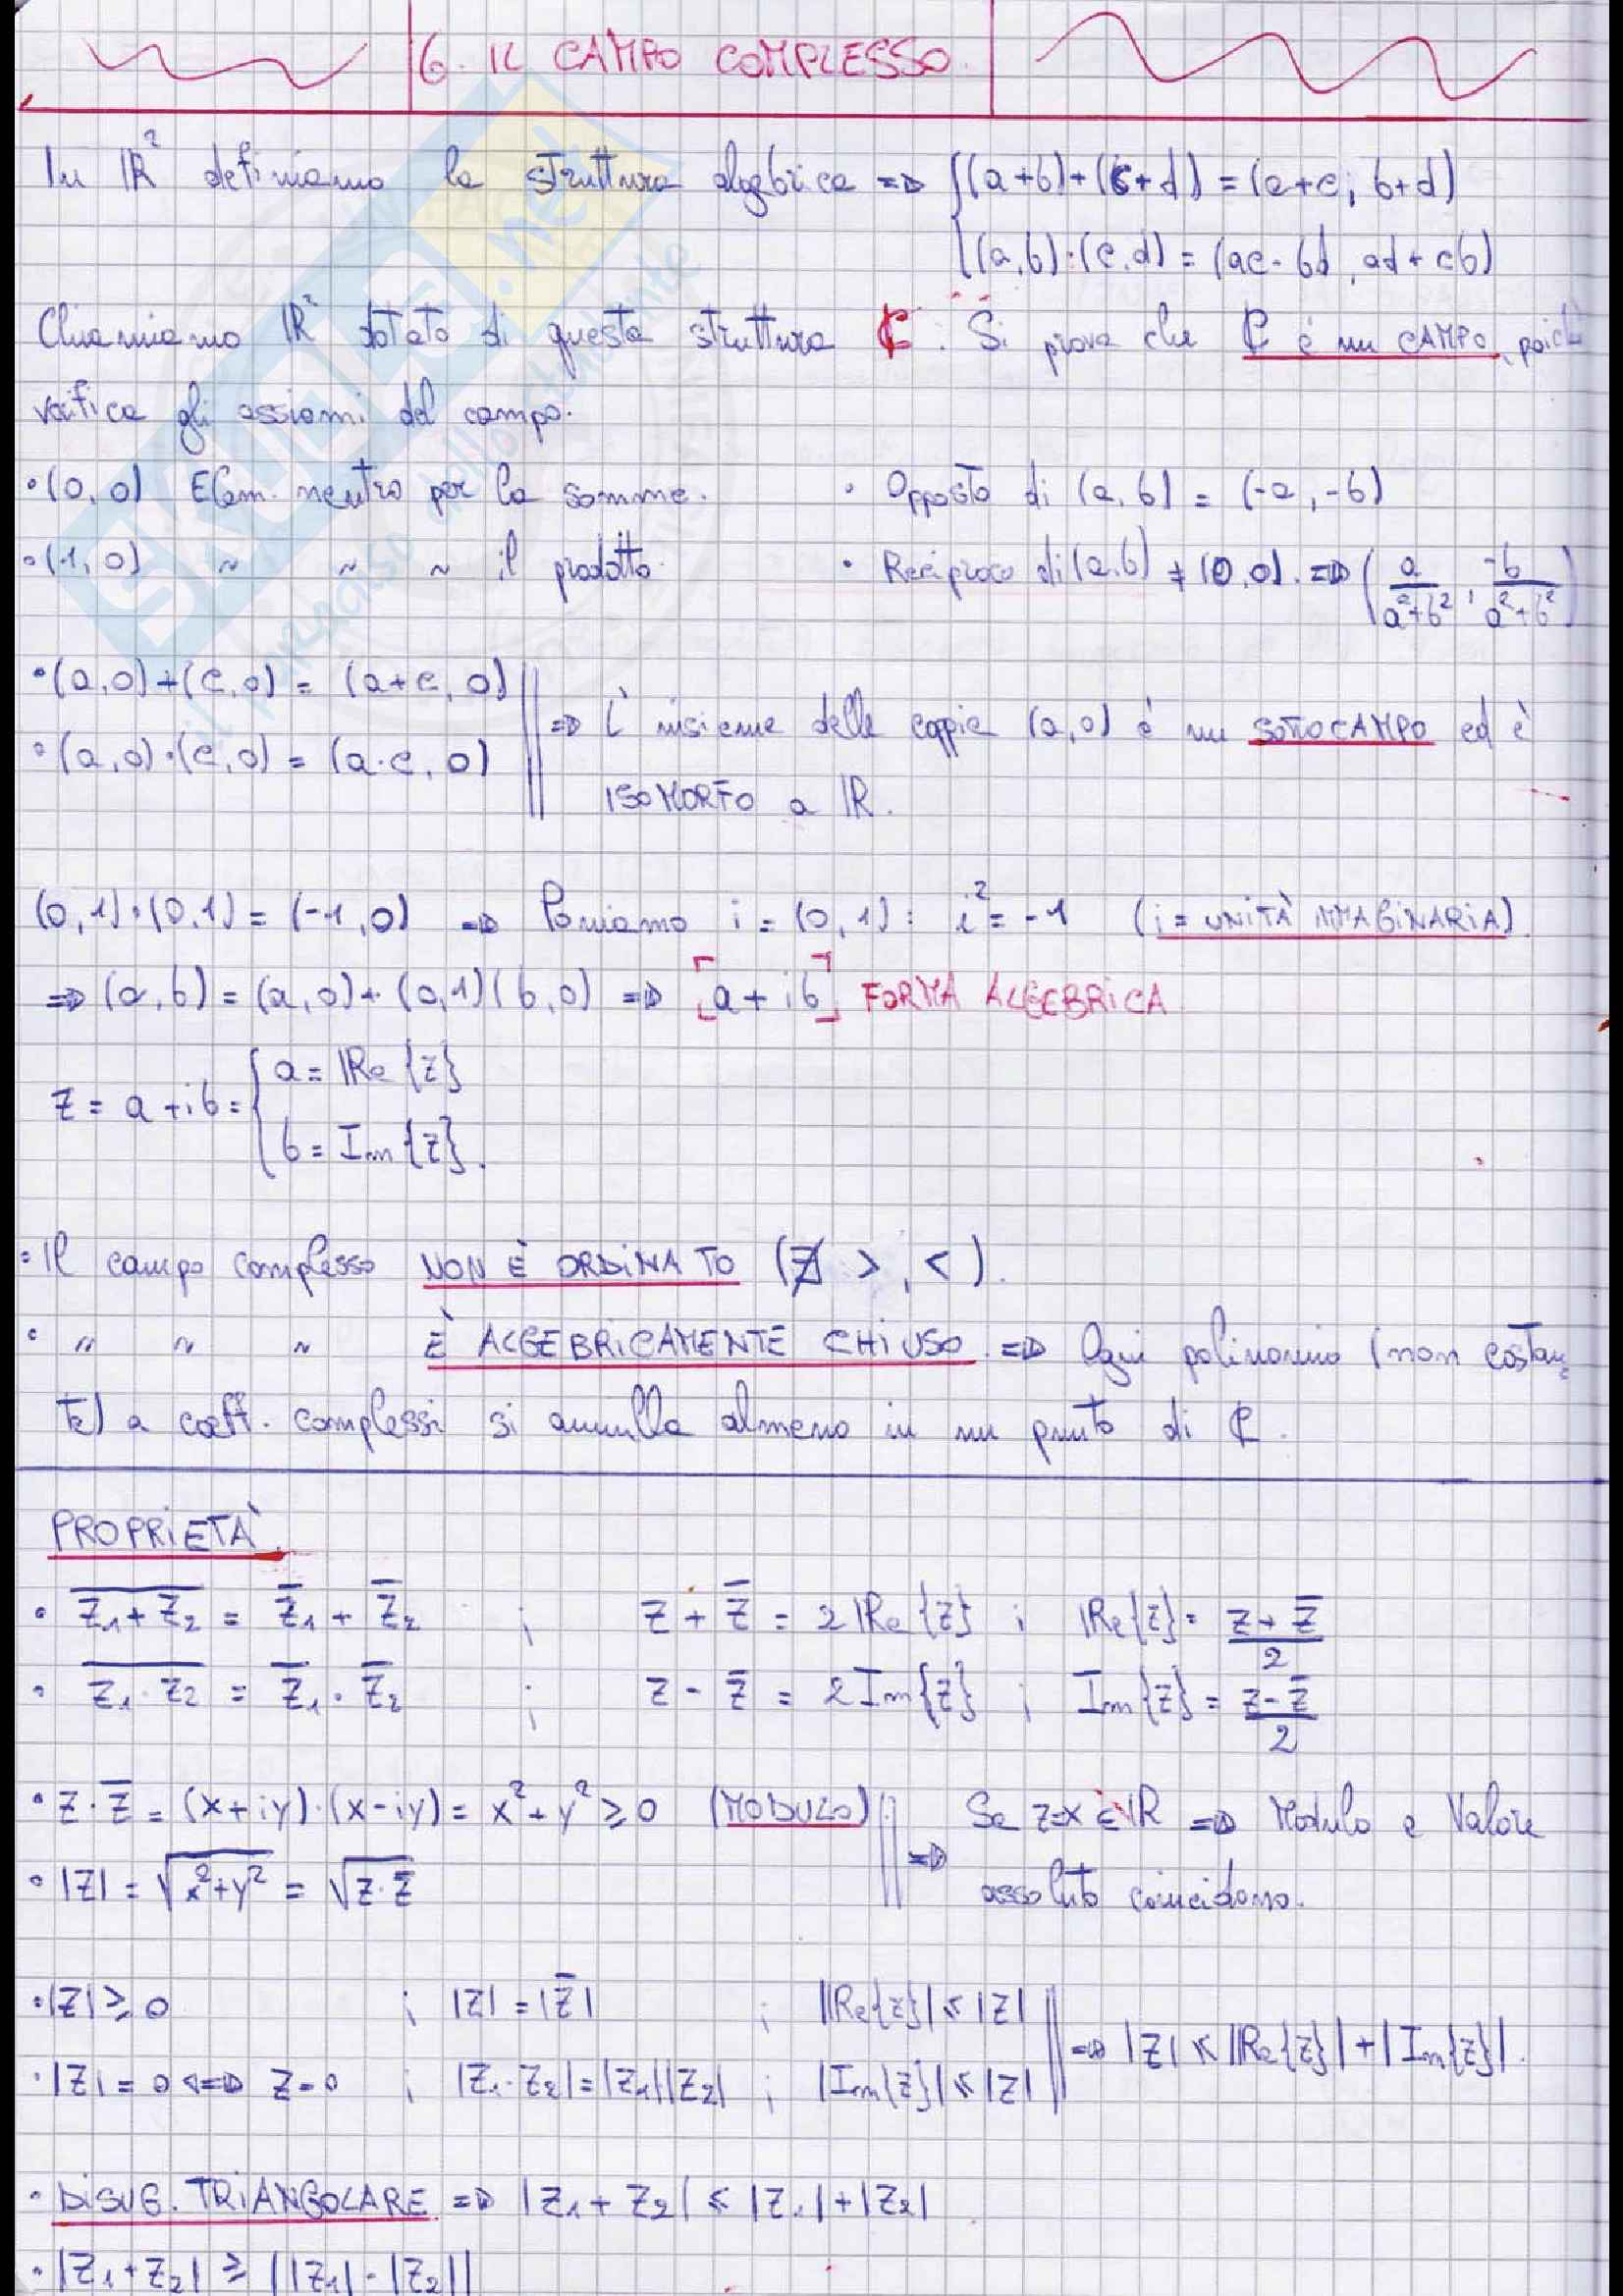 6. IL CAMPO COMPLESSO.
In ℝ² definiamo la struttura algebrica => { (a+b)+(c+d) = (a+c; b+d)
(a,b)·(c,d) = (ac-bd, ad+cb)
Chiamiamo ℝ² dotato di questa struttura ℂ. Si prova che ℂ è un CAMPO, poichè
verifica gli assiomi del campo.
• (0,0) Elem. neutro per la somma. • Opposto di (a,b) = (-a,-b)
• (1,0) ~ ~ ~ il prodotto. • Reciproco di (a,b) ≠ (0,0). => (a/(a²+b²), -b/(a²+b²))
• (a,0)+(c,0) = (a+c,0)
• (a,0)·(c,0) = (a·c,0)
=> L'insieme delle coppie (a,0) è un SOTTOCAMPO ed è
ISOMORFO a ℝ.
(0,1)·(0,1) = (-1,0) => Poniamo i = (0,1): i² = -1 (i = UNITÀ IMMAGINARIA).
=> (a,b) = (a,0)+(0,1)(b,0) => [a+ib] FORMA ALGEBRICA
z = a+ib = { a = ℝe{z}
b = Im{z}.
• Il campo complesso NON È ORDINATO (∄ >, <).
• " ~ ~ È ALGEBRICAMENTE CHIUSO. => Ogni polinomio (non costan
te) a coeff. complessi si annulla almeno in un punto di ℂ.
PROPRIETÀ.
• \overline{z₁+z₂} = z̄₁ + z̄₂ ; z + z̄ = 2ℝe{z} ; ℝe{z} = (z+z̄)/2
• \overline{z₁·z₂} = z̄₁·z̄₂ ; z - z̄ = 2Im{z} ; Im{z} = (z-z̄)/2
• z·z̄ = (x+iy)·(x-iy) = x²+y² ≥ 0 (MODULO)
• |z| = √(x²+y²) = √(z·z̄)
=> Se z=x∈ℝ => Modulo e Valore
assoluto coincidono.
• |z| ≥ 0 ; |z| = |z̄| ; |ℝe{z}| ≤ |z|
• |z| = 0 <=> z=0 ; |z₁·z₂| = |z₁||z₂| ; |Im{z}| ≤ |z|
=> |z| ≤ |ℝe{z}| + |Im{z}|.
• DISUG. TRIANGOLARE => |z₁+z₂| ≤ |z₁|+|z₂|
• |z₁+z₂| ≥ ||z₁|-|z₂||
SKUOLA.net
il paradiso dello studente